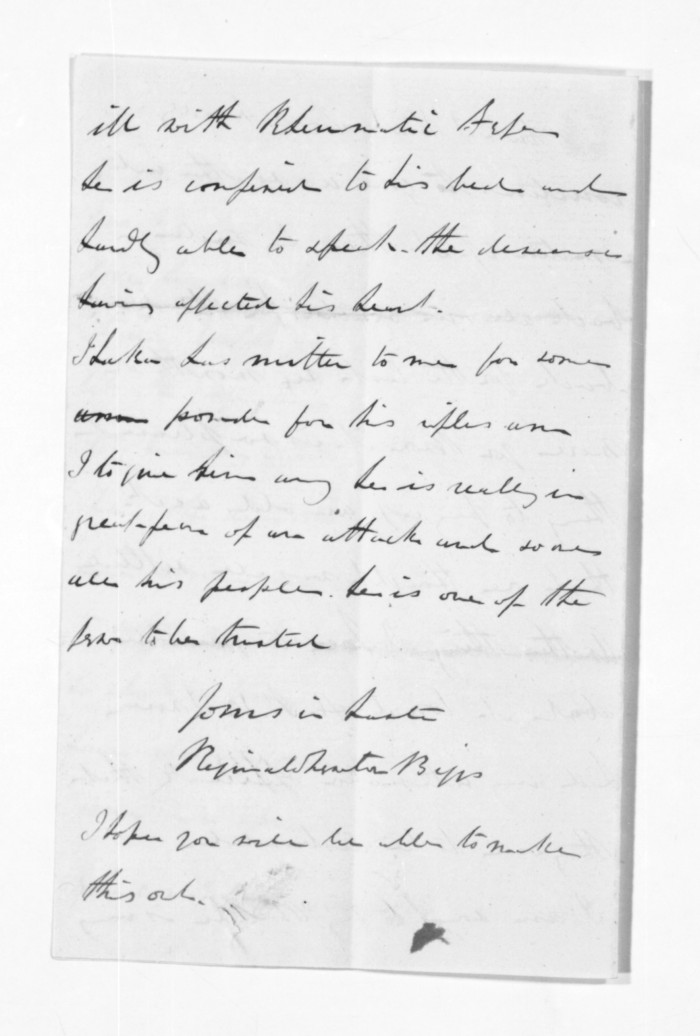 ill with Rheumatic Fever
he is confined to his bed and
hardly able to speak. the disease
having affected his heart.
Ihaka has written to me for some
powder for his rifles am
I to give him any he is really in
great fear of an attack and so are
all his people. he is one of the
few to be trusted
Yours in haste
Reginald Newton Biggs
I hope you will be able to make
this out.